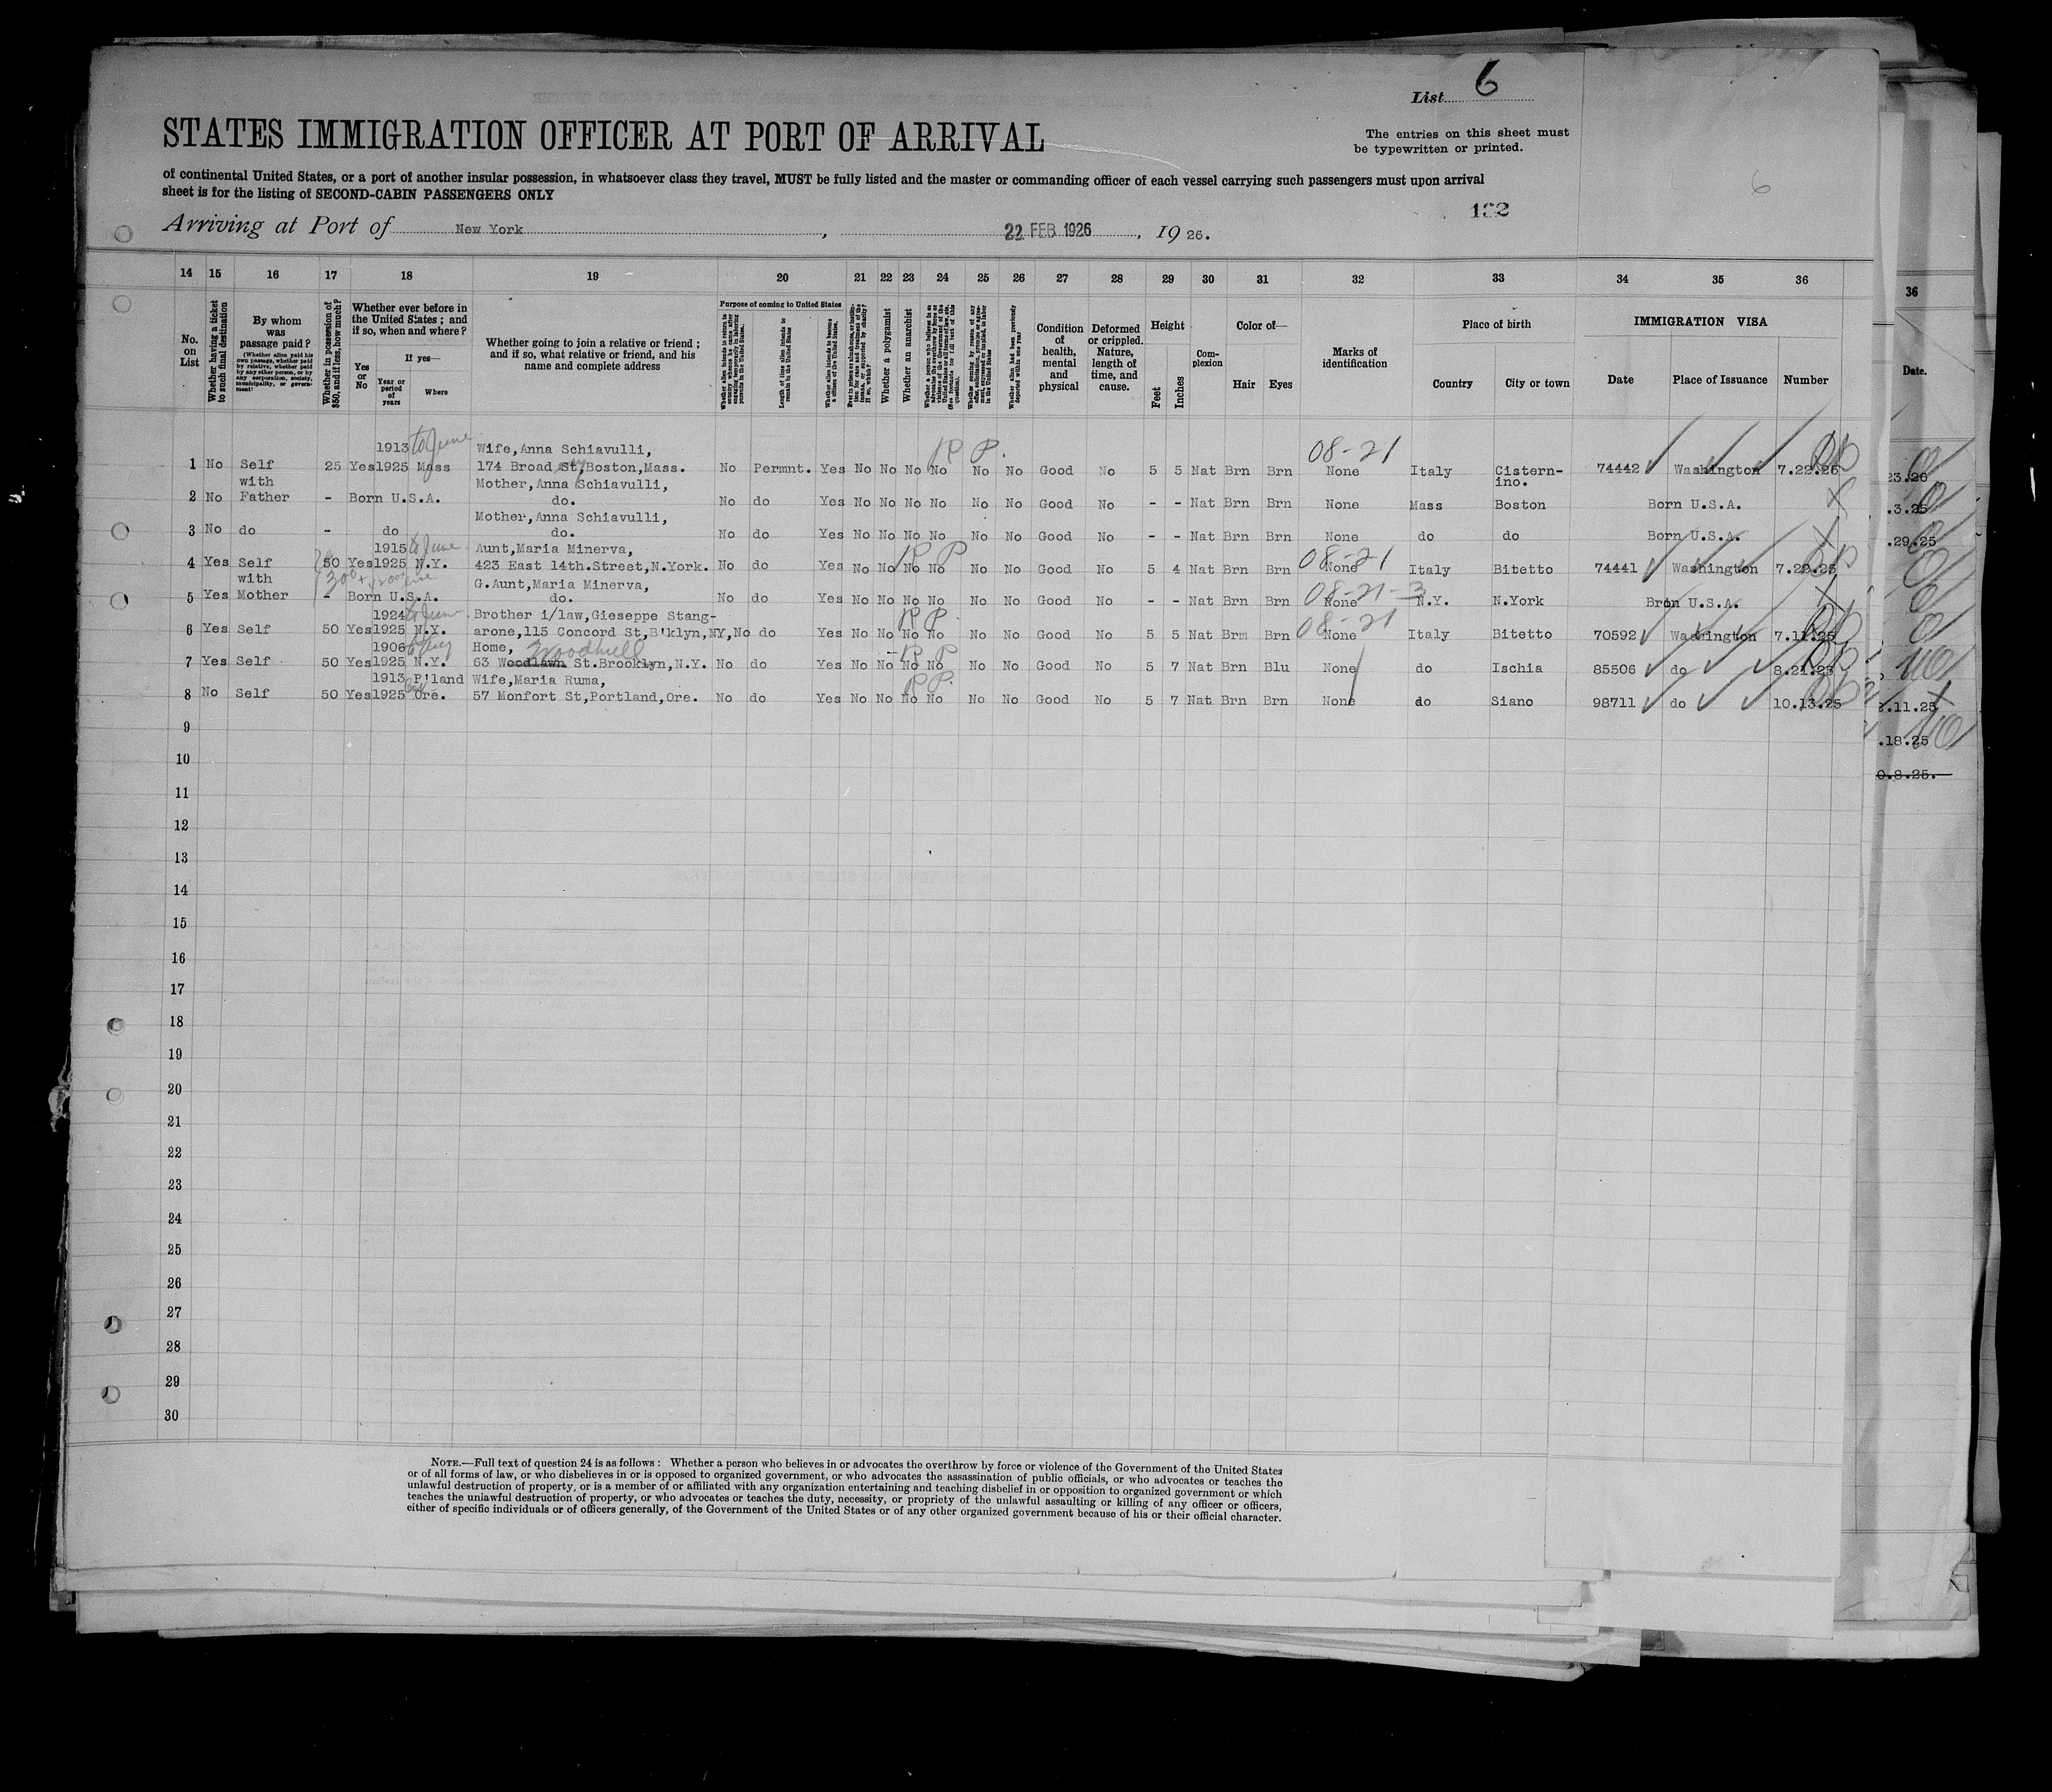 List 6
STATES IMMIGRATION OFFICER AT PORT OF ARRIVAL
The entries on this sheet must
be typewritten or printed.
of continental United States, or a port of another insular possession, in whatsoever class they travel, MUST be fully listed and the master or commanding officer of each vessel carrying such passengers must upon arrival
sheet is for the listing of SECOND-CABIN PASSENGERS ONLY
6
132
Arriving at Port of New York, 22 FEB 1926, 1926.
14 15 16 17 18 19 20 21 22 23 24 25 26 27 28 29 30 31 32 33 34 35 36
36
No. on List
Whether having a ticket to such final destination
By whom was passage paid?
(Whether alien paid his own passage, whether paid by relative, whether paid by any other person, or by any corporation, society, municipality, or government)
Whether in possession of $50, and if less, how much?
Whether ever before in the United States; and if so, when and where?
Yes or No
If yes—
Year or period of years
Where
Whether going to join a relative or friend; and if so, what relative or friend, and his name and complete address
Purpose of coming to United States
Length of time alien intends to remain in the United States
Whether alien intends to become a citizen of the United States.
Whether a polygamist
Whether an anarchist
Whether alien had been previously deported within one year
Condition of health, mental and physical
Deformed or crippled. Nature, length of time, and cause.
Height
Feet
Inches
Complexion
Color of—
Hair
Eyes
Marks of identification
Place of birth
Country
City or town
IMMIGRATION VISA
Date
Place of Issuance
Number
Date.
1913 to June Wife,Anna Schiavulli, R P. 08-21
1 No Self 25 Yes 1925 Mass 174 Broad St,Boston,Mass. No Permnt. Yes No No No No No No Good No 5 5 Nat Brn Brn None Italy Cistern- 74442 Washington 7.22.25
with Mother,Anna Schiavulli, ino.
2 No Father - Born U.S.A. do. No do Yes No No No No No No Good No - - Nat Brn Brn None Mass Boston Born U.S.A.
Mother,Anna Schiavulli,
3 No do - do do. No do Yes No No No No No No Good No - - Nat Brn Brn None do do Born U.S.A.
1915 to June Aunt,Maria Minerva, R P 08-21
4 Yes Self 50 Yes 1925 N.Y. 423 East 14th.Street,N.York. No do Yes No No No No No No Good No 5 4 Nat Brn Brn None Italy Bitetto 74441 Washington 7.22.25
with G.Aunt,Maria Minerva, 08-21-3
5 Yes Mother - Born U.S.A. do. No do Yes No No No No No No Good No - - Nat Brn Brn None N.Y. N.York Bron U.S.A.
1924 to June Brother i/law,Gieseppe Stang- R P 08-21
6 Yes Self 50 Yes 1925 N.Y. arone,115 Concord St,B'klyn,NY, No do Yes No No No No No No Good No 5 5 Nat Brm Brn None Italy Bitetto 70592 Washington 7.11.25
1906 Home, Woodhull R P
7 Yes Self 50 Yes 1925 N.Y. 63 Woodlawn St.Brooklyn,N.Y. No do Yes No No No No No No Good No 5 7 Nat Brn Blu None do Ischia 85506 do 8.21.25
1913 P'land Wife,Maria Ruma, R P.
8 No Self 50 Yes 1925 Ore. 57 Monfort St,Portland,Ore. No do Yes No No No No No No Good No 5 7 Nat Brn Brn None do Siano 98711 do 10.13.25
9
10
11
12
13
14
15
16
17
18
19
20
21
22
23
24
25
26
27
28
29
30
.3.25
.29.25
.11.25
.18.25
0.8.25.
NOTE.—Full text of question 24 is as follows: Whether a person who believes in or advocates the overthrow by force or violence of the Government of the United States
or of all forms of law, or who disbelieves in or is opposed to organized government, or who advocates the assassination of public officials, or who advocates or teaches the
unlawful destruction of property, or is a member of or affiliated with any organization entertaining and teaching disbelief in or opposition to organized government or which
teaches the unlawful destruction of property, or who advocates or teaches the duty, necessity, or propriety of the unlawful assaulting or killing of any officer or officers,
either of specific individuals or of officers generally, of the Government of the United States or of any other organized government because of his or their official character.